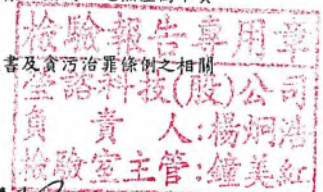 檢驗報告專用章
書及貪污治罪條例之相關
科技(股)公司
負責人:楊炯浩
檢驗室主管:鐘美紅